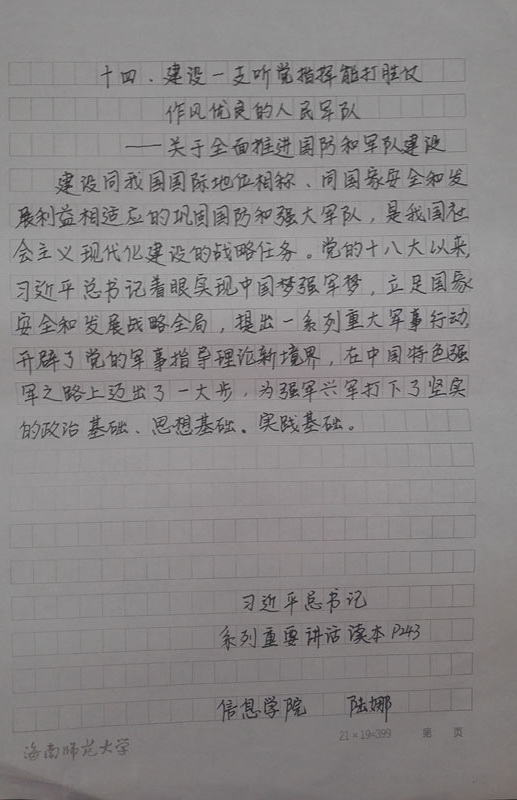 十四、建设一支听党指挥能打胜仗
作风优良的人民军队
——关于全面推进国防和军队建设
建设同我国国际地位相称、同国家安全和发
展利益相适应的巩固国防和强大军队，是我国社
会主义现代化建设的战略任务。党的十八大以来，
习近平总书记着眼实现中国梦强军梦，立足国家
安全和发展战略全局，提出一系列重大军事行动，
开辟了党的军事指导理论新境界，在中国特色强
军之路上迈出了一大步，为强军兴军打下了坚实
的政治基础、思想基础、实践基础。
习近平总书记
系列重要讲话读本P243
信息学院 陆娜
海南师范大学 21×19=399 第 页